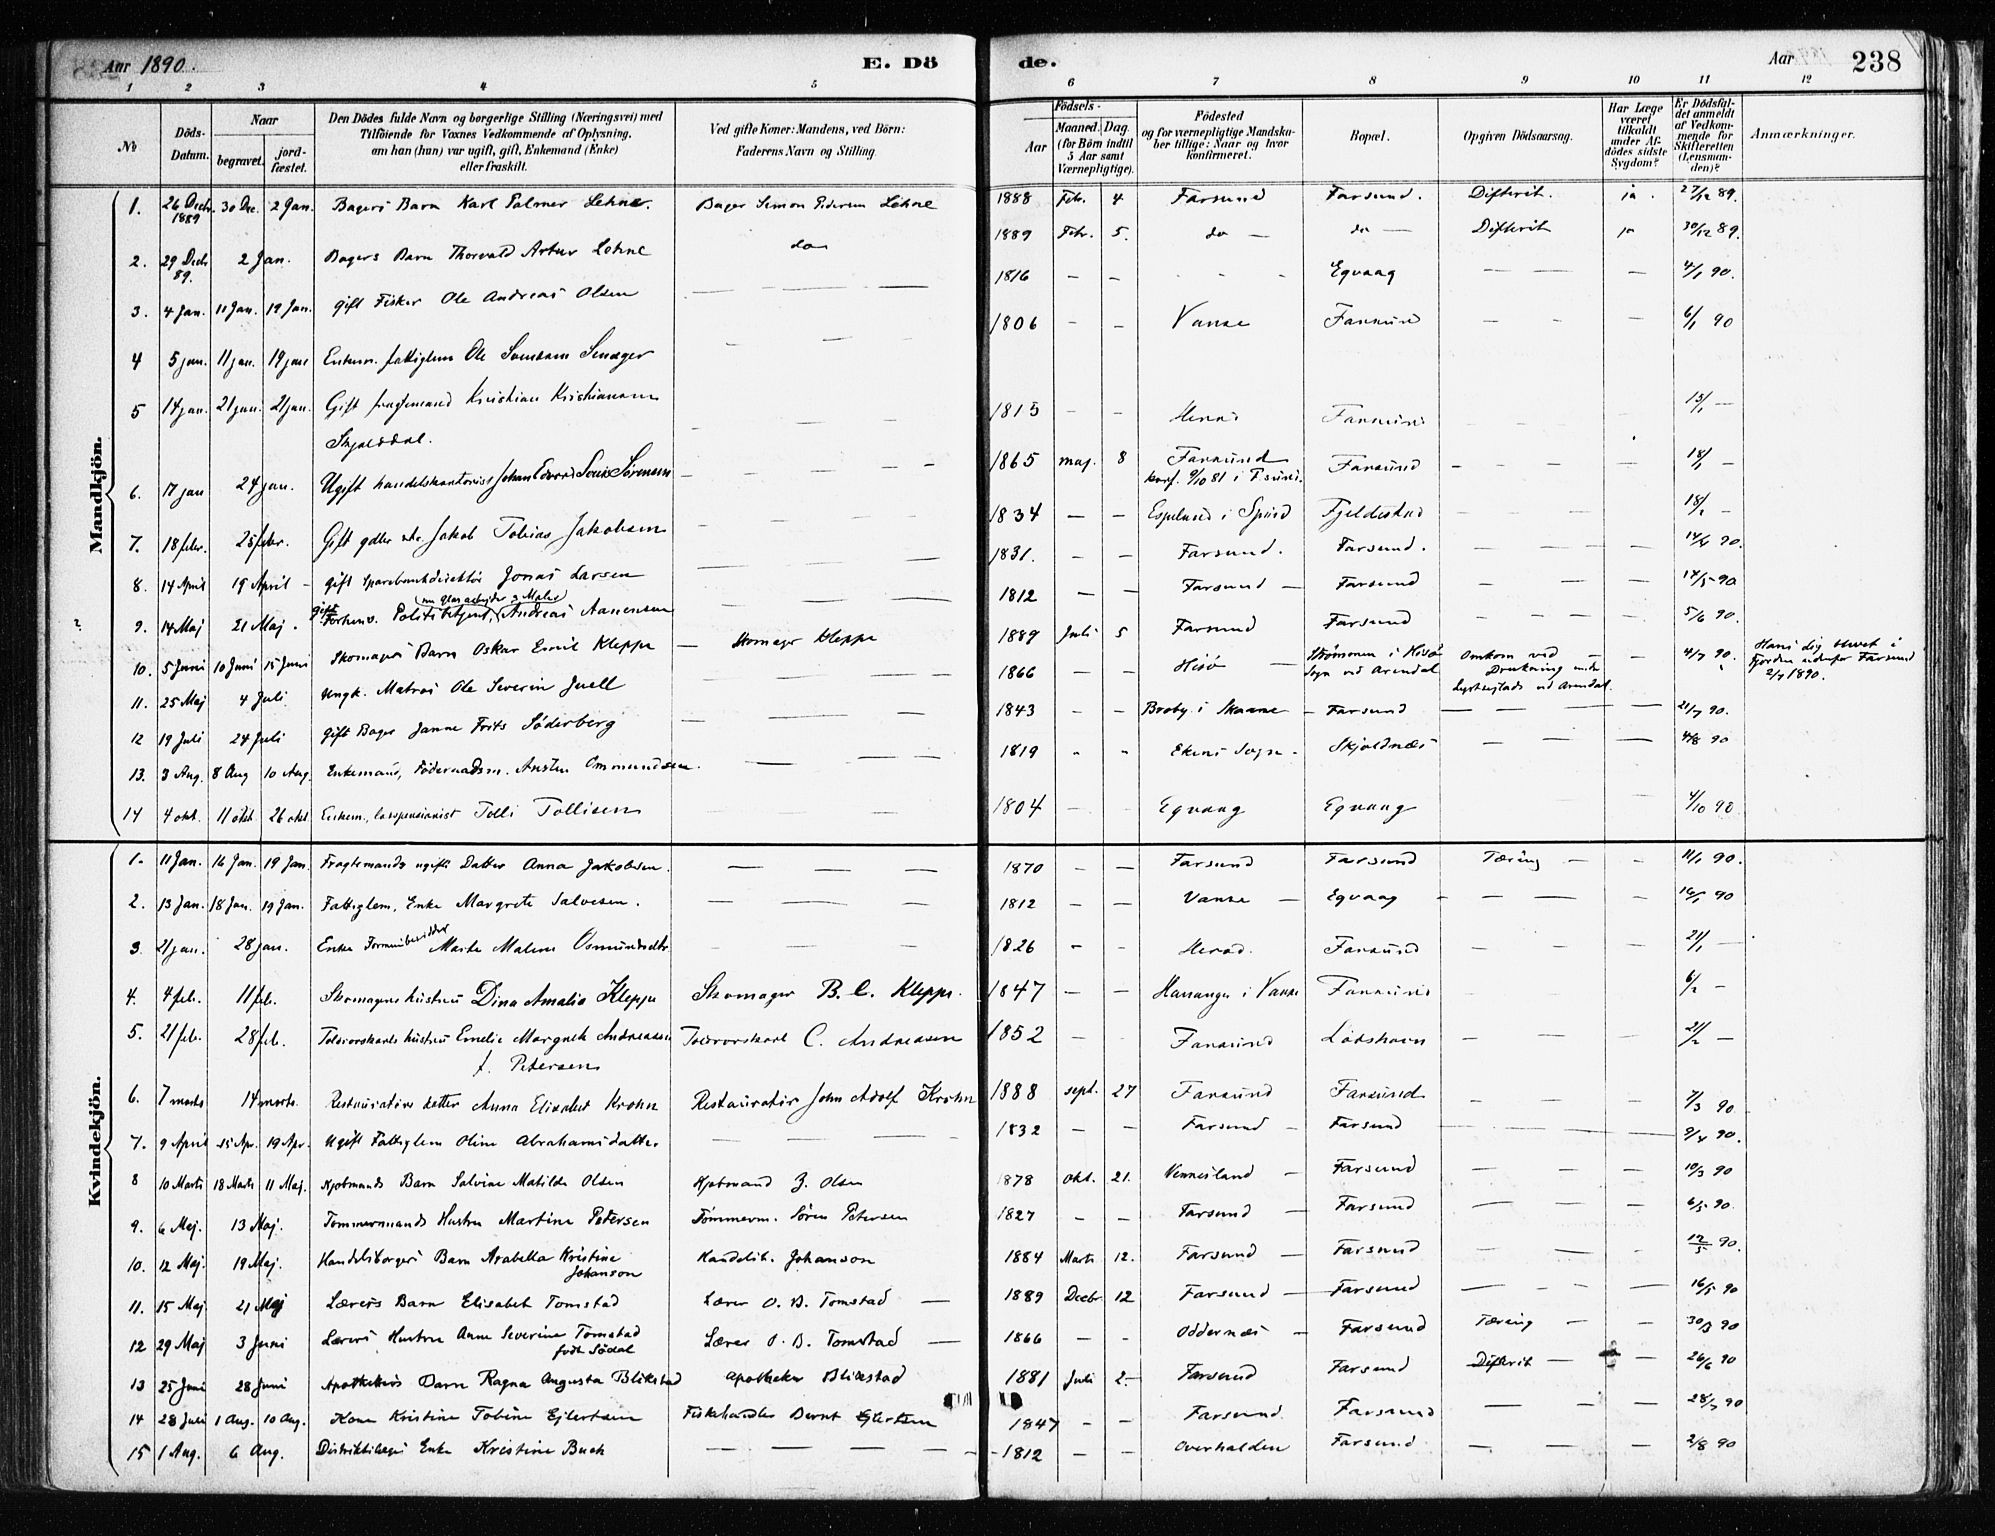 Aar 1890.
E. Dö
de.
Aar
238
1 2 3 4 5 6 7 8 9 10 11 12
No
Döds-Datum.
Naar
begravet.
jord-fæstet.
Den Dödes fulde Navn og borgerlige Stilling (Næringsvei) med
Tilföiende for Voxnes Vedkommende af Oplysning,
om han (hun) var ugift, gift, Enkemand (Enke)
eller fraskilt.
Ved gifte Koner: Mandens, ved Börn:
Faderens Navn og Stilling.
Födsels-
Aar
Maaned. Dag.
(for Börn indtil
5 Aar samt
Værnepligtige).
Födested
og for værnepligtige Mandska-
ber tillige: Naar og hvor
konfirmeret.
Bopæl.
Opgiven Dödsaarsag.
Har Læge
været
tilkaldt
under Af-
dödes sidste
Sygdom?
Er Dödsfal-
det anmeldt
af Vedkom-
mende for
Skifteretten
(Lensman-
den)?
Anmærkninger.
Mandkjön.
1. 26 Decb. 1889 30 Dec. 2 Jan. Bagers Barn Karl Palmer Lehne. Bager Simon Pedersen Lehne 1888 Febr. 4 Farsund Farsund. Difterit. ja. 27/12 89.
2. 29 Decb 89. 2 Jan. Bagers Barn Thorvald Artur Lehne do 1889 Febr. 5. do — do — Difterit ja 30/12 89.
3. 4 Jan. 11 Jan. 19 Jan. gift Fisker Ole Andreas Olsen — 1816 — — Eqvaag — — 4/1 90.
4 5 jan. 11 jan. 19 jan Enkem. fattiglem Ole Svendsen — 1806 — — Vanse Farsund — — 6/1 90
5 14 jan. 21 jan. 21 jan. Gift fragtemand Kristian Kristiansen
Skjolddal. — 1815 — — Herad Farsund 15/1 —
6. 17 jan 24 jan. Ugift handelskontorist Johan Edvard Sørensen — 1865 maj. 8 Farsund
konf. 9/10 81 i F.sund. Farsund — 18/1 —
7. 18 febr. 25 febr. Gift Jakob Tobias Jakobsen — 1834 — — Espelund i Spind Fjeldestad 18/2 —
8. 14 April 19 April — gift Sparebankdirektör Jonas Larsen — 1831. — — Farsund. Farsund. — 14/4 90.
9. 14 Maj 21 Maj. gift Forhenv. Politibetjent, (nu Glasarbejder og Maler) Andreas Aanensen — 1812 — — Farsund — Farsund — 14/5 90
10. 5 Juni 10 Juni 15 Juni Skomagers Barn Oskar Emil Kleppe — Skomager Kleppe 1889 Juli 5 Farsund Farsund — 5/6 90.
11. 25 Maj 4 Juli Ungk. Matros Ole Severin Juell — 1866 — — Hisö — Strömmen i Hisö
Sogn ved Arendal Omkom ved
Drukning under
ved Arendal. — 4/7 90. Hans Lig blevet i
Fjorden udenfor Farsund
2/7 1890.
12 19 Juli 24 Juli gift Bager Janne Frits Söderberg — 1843 — — Broby i Skaane — Farsund — 21/7 90.
13. 3 Aug. 8 Aug 10 Aug. Enkemand, Föderaadsm. Austen Ommundsen. — 1819 Ekens Sogn — Skjoldnæs — 4/8 90
14 4 okt. 11 okt. 26 okt Enkem., Tolli Tollisen — 1804 — — Eqvaag Eqvaag 4/10 90
Kvindekjön.
1. 11 Jan. 16 Jan. 19 Jan. Fragtemands ugifte Datter Anna Jakobsen. — 1870 — — Farsund Farsund Tæring — — 11/1 90.
2. 13 Jan. 18 Jan. 19 Jan. Fattiglem, Enke Margrete Salvesen. — 1812 — — Vanse — Eqvaag — 16/1 90
3. 21 jan. 28 jan. Enke Formuebesidder Marte Malene Osmundsdtr — 1826 — — Herad. Farsund — 21/1 —
4. 4 feb. 11 feb. Skomagers hustru Dina Amalia Kleppe Skomager B. C. Kleppe. 1847 — — Hananger i Vanse Farsund 6/2 —
5. 21 feb. 28 feb. Toldrorskarls hustru Emelie Margrete Andreassen
f. Petersen Toldrorskarl C. Andreasen 1852 — — Farsund Lodshavn — 21/2 —
6. 7 marts 14 marts. Restauratørs datter Anna Elisabet Krohn Restauratør John Adolf Krohn 1888 sept. 27 Farsund Farsund — 7/3 90
7. 9 April 15 Apr. 19 Apr. Ugift Fattiglem Oline Abrahamsdatter — 1832 — — Farsund — Farsund — 9/4 90.
8 10 Marts 18 Marts 11 Maj. Kjöbmands Barn Salvine Matilde Olsen Kjöbmand Z. Olsen 1878 Okt. 21. Vennesland — Farsund — 10/3 90
9. 6 Mej. 13 Maj. Tömmermands Hustru Martine Petersen Tömmerm. Sören Petersen 1827 — — Farsund — Farsund — 6/5 90.
10. 12 Mej. 19 Maj. Handelsborgers Barn Arabella Kristine
Johanson Handelsb. Johanson 1884 Marts 12. Farsund — Farsund — 12/5 90.
11. 15 Mej 21 Mej Lærers Barn Elisabet Tomstad Lærer O. B. Tomstad — 1889 Decbr 12 Farsund — Farsund — 16/5 90
12 29 Maj 3 Juni Lærers Hustru Anne Severine Tomstad
född Södal Lærer O. B. Tomstad — 1866 — — Oddernæs — Farsund Tæring — — 30/5 90
13 25 Juni 28 Juni Apothekers Barn Ragna Augusta Blikstad Apotheker Blikstad 1881 Juli 2. Farsund Farsund Difterit — — 26/6 90
14 28 Juli 1 Aug. 10 Aug. Kone Kristine Tobine Ejlertsen Fiskehandler Bernt Ejlertsen 1847 — — Farsund. Farsund — 28/7 90
15 1 Aug. 6 Aug. Distriktslæges Enke Kristine Buch — 1812 — — Overhalden Farsund. — 2/8 90